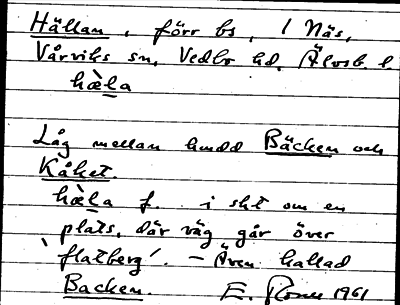 Hällan, förr bs, 1 Näs,
Vårviks sn, Vedbo hd, Älvsb. l
hæ̀la
Låg mellan hmdd Bäcken och
Kåket.
hæ̀la f. i sht om en
plats, där väg går över
'flatberg'. – Även kallad
Backen. E. 1961